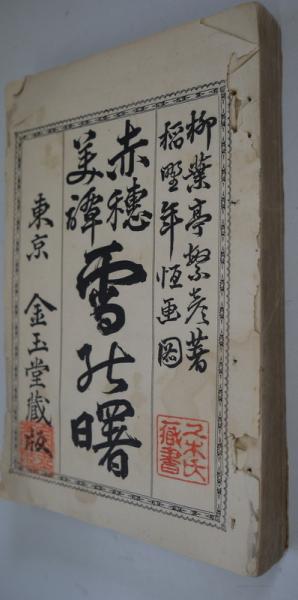 柳葉亭繁彦著
稲野年恒画図
赤穂
美譚
雪能曙
東京 金玉堂蔵版
久木氏
蔵書